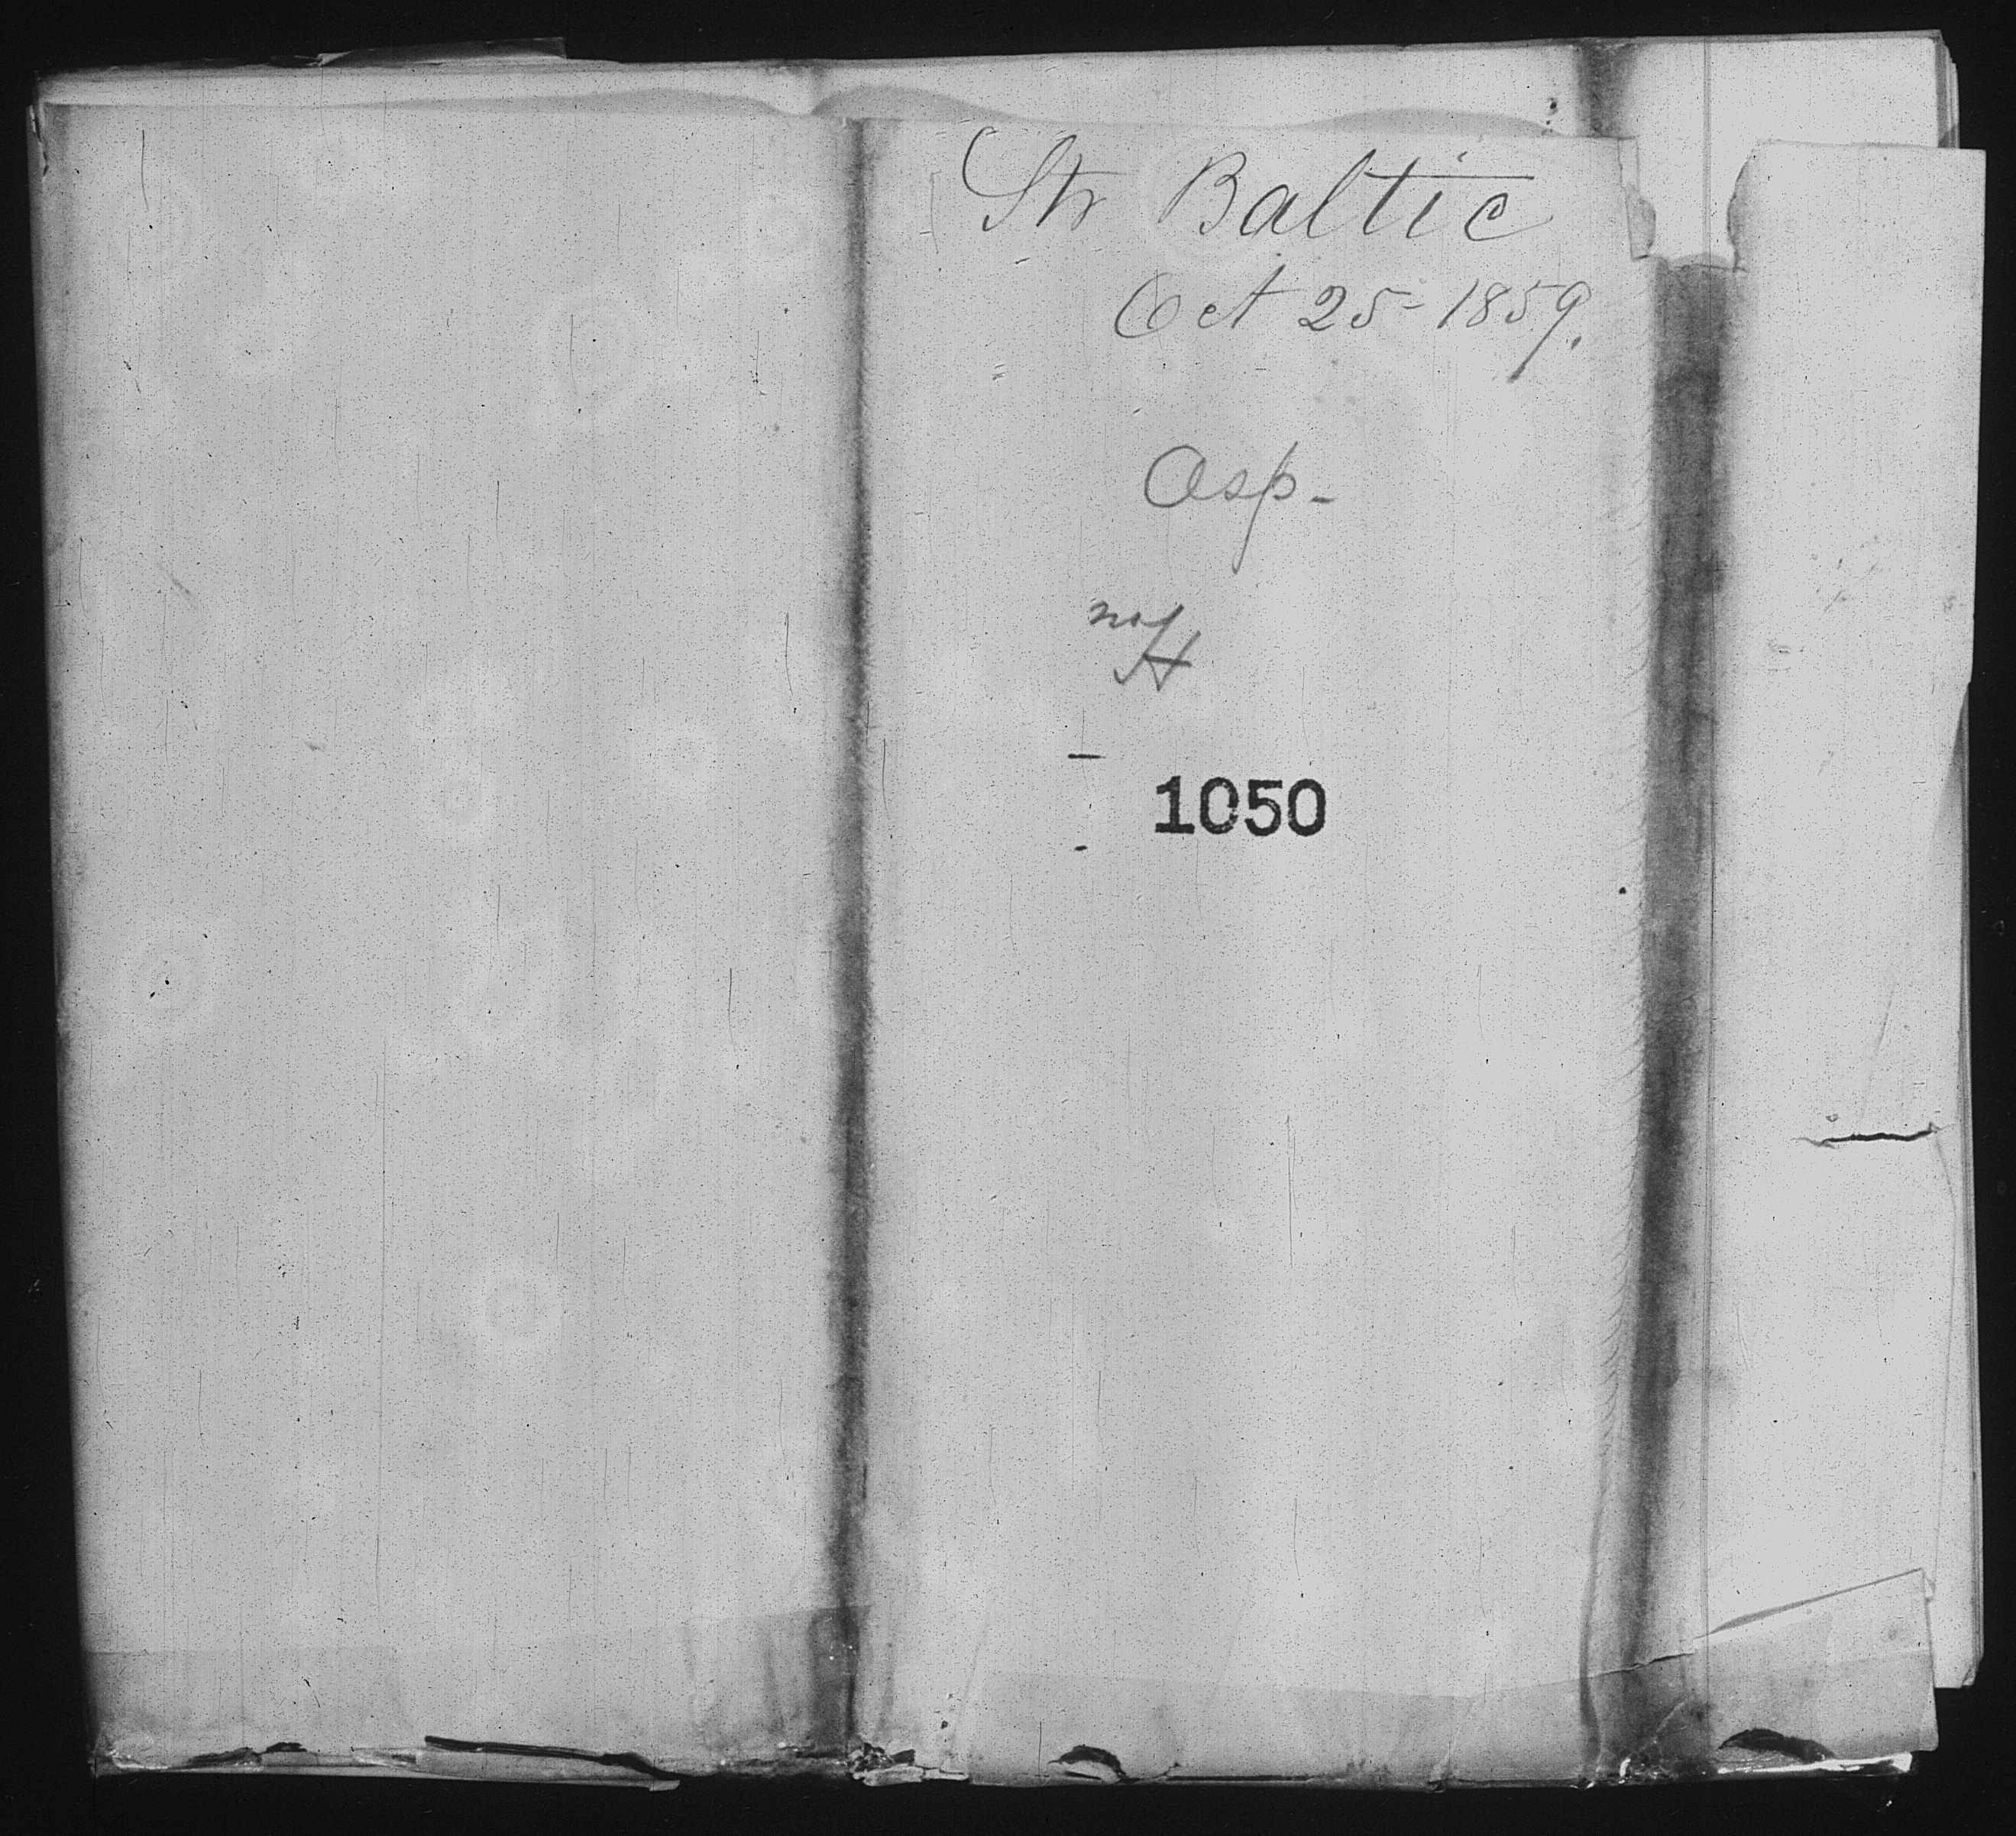 Str Baltic
Oct 25-1859.
Asp-
not
1050